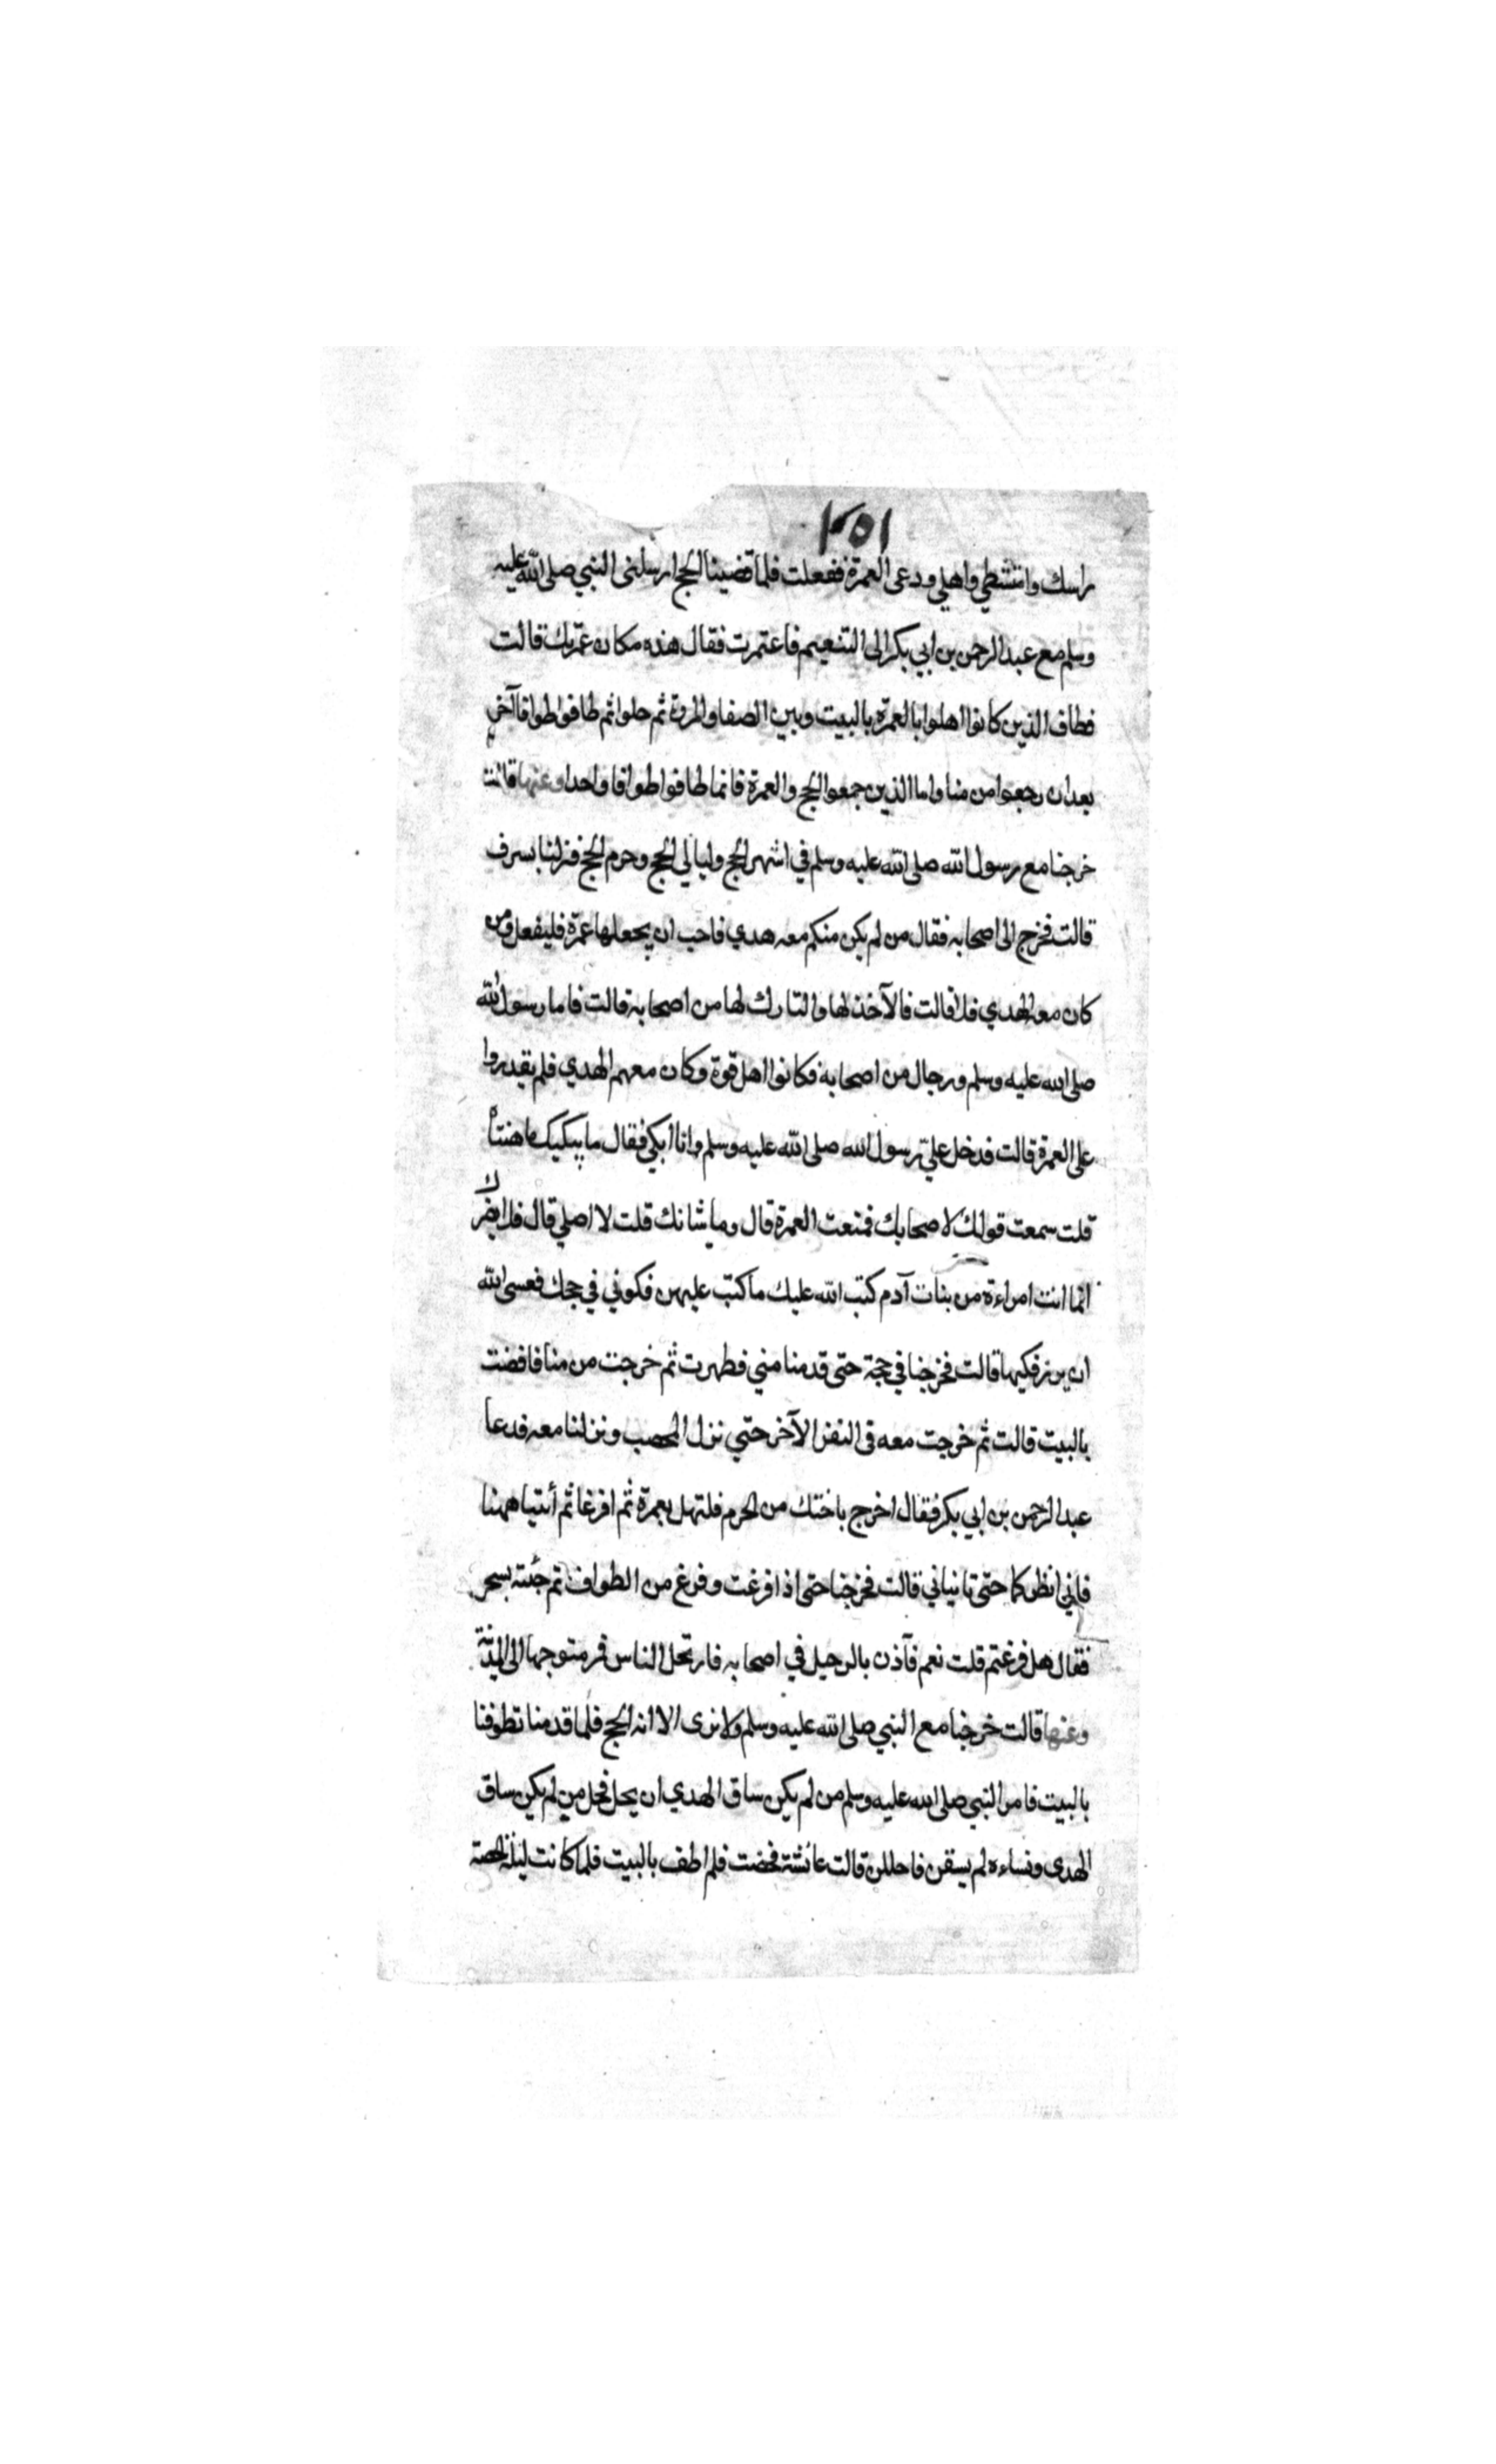 ١٥١
راسك وانتشطي واهلي ودعى العمرة ففعلت فلما قضينا الحج ارسلنى النبي صلى الله عليه
وسلم مع عبد الرحمن بن ابي بكر الى التنعيم فاعتمرت فقال هذه مكان عمرتك قالت
فطاف الذين كانوا اهلوا بالعمرة بالبيت وبين الصفا والمروة ثم حلوا ثم طافوا طوافا آخر
بعد ان رجعوا من منا واما الذين جمعوا الحج والعمرة فانما طافوا طوافا واحدا وعنها قالت
خرجنا مع رسول الله صلى الله عليه وسلم في اشهر الحج وليالي الحج وحرم الحج فنزلنا بسرف
قالت فخرج الى اصحابه فقال من لم يكن منكم معه هدي فاحب ان يجعلها عمرة فليفعل ومن
كان معه الهدي فلا قالت فالآخذ لها والتارك لها من اصحابه قالت فاما رسول الله
صلى الله عليه وسلم ورجال من اصحابه فكانوا اهل قوة وكان معهم الهدي فلم يقدروا
على العمرة قالت فدخل علي رسول الله صلى الله عليه وسلم وانا ابكي فقال ما يبكيك يا هنتاه
قلت سمعت قولك لاصحابك فمنعت العمرة قال وما شانك قلت لا اصلي قال فلا يضرك
انما انت امراءة من بنات آدم كتب الله عليك ما كتب عليهن فكوني في حجك فعسى الله
ان يرزفكيها قالت فخرجنا في حجة حتى قدمنا مني فطهرت ثم خرجت من منا فافضت
بالبيت قالت ثم خرجت معه فى النفر الآخر حتي نزل المحصب ونزلنا معه فدعا
عبد الرحمن بن ابي بكر فقال اخرج باختك من الحرم فلتهل بعمرة ثم افرغا ثم أئتيا ههنا
فاني انظركما حتى تاتياني قالت فخرجنا حتى اذا فرغت وفرغ من الطواف ثم جئته بسحر
فقال هل فرغتم قلت نعم فآذن بالرحيل في اصحابه فارتحل الناس فمر متوجها الى المدينة
وعنها قالت خرجنا مع النبي صلى الله عليه وسلم ولا نرى الا انه الحج فلما قدمنا تطوفنا
بالبيت فامر النبي صلى الله عليه وسلم من لم يكن ساق الهدي ان يحل فحل من لم يكن ساق
الهدى ونساءه لم يسقن فاحللن قالت عائشة فحضت فلم اطف بالبيت فلما كانت ليلة الحصبة